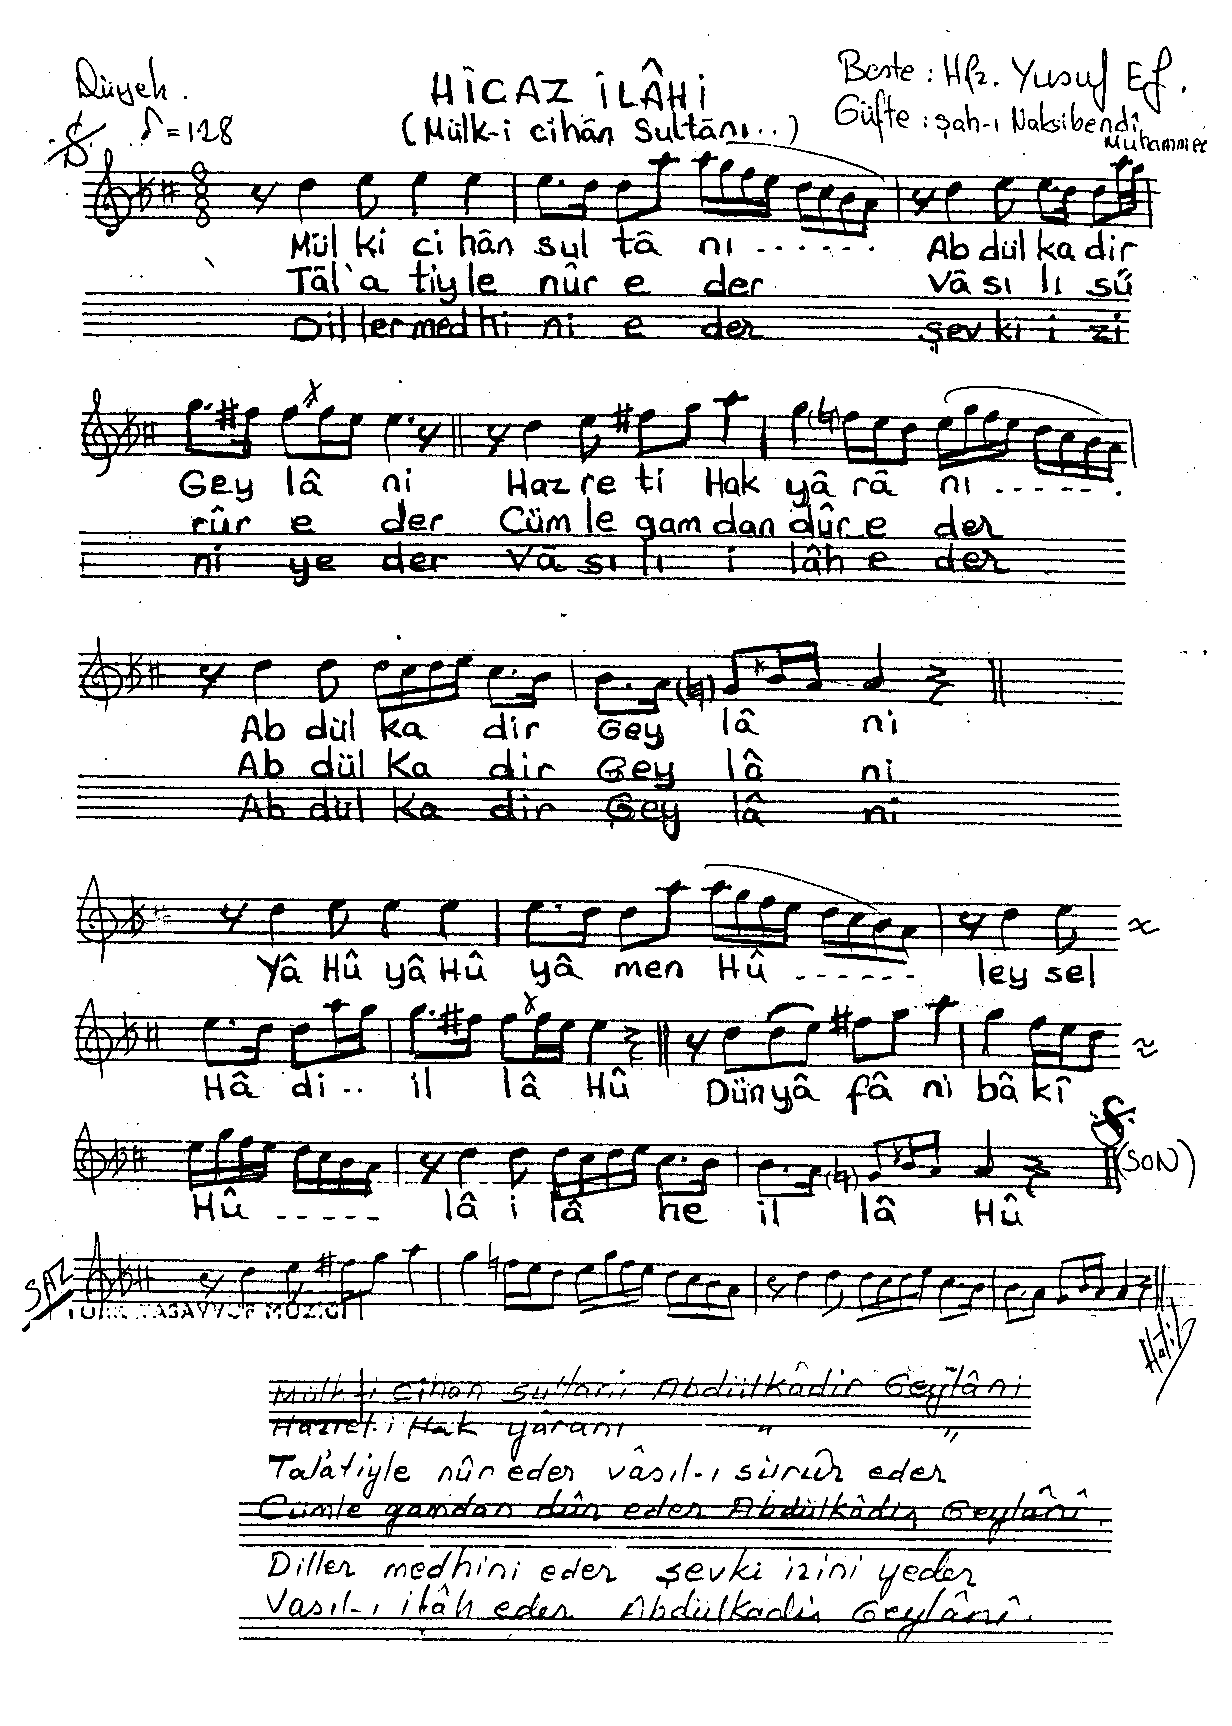 Düyek.
HİCAZ İLÂHİ
Beste : Hfz. Yusuf Ef.
= 128
(Mülk-i cihân Sultânı..)
Güfte : Şah-ı Nakşibendî
Muhammed
8
8
Mül ki ci hân sul tâ nı ...... Ab dül ka dir
Tâl'a tiyle nûr e der Vâ sı lı sü
Diller medhi ni e der şev ki i zi
Gey lâ ni Haz re ti Hak yâ râ nı ......
rûr e der Cüm le gam dan dûr e der
ni ye der Vâ sı lı i lâh e der
Ab dül ka dir Gey lâ ni
Ab dül Ka dir Gey lâ ni
Ab dül Ka dir Gey lâ ni
Yâ Hû yâ Hû yâ men Hû ------ ley sel
Hâ di.. il lâ Hû Dün yâ fâ ni bâ kî
(SON)
Hû ----- lâ i lâ he il lâ Hû
SAZ
TÜRK TASAVVUF MÜZİĞİ
Hatib
Mülk-i Cihan Sultanı Abdülkâdir Geylâni
Hazret-i Hak yâranı " "
Talâtiyle nûr eder vâsıl-ı sürûr eder
Cümle gamdan dûn eder Abdülkâdir Geylânî
Diller medhini eder şevki izini yeder
Vasıl-ı ilâh eder Abdülkadir Geylânî.